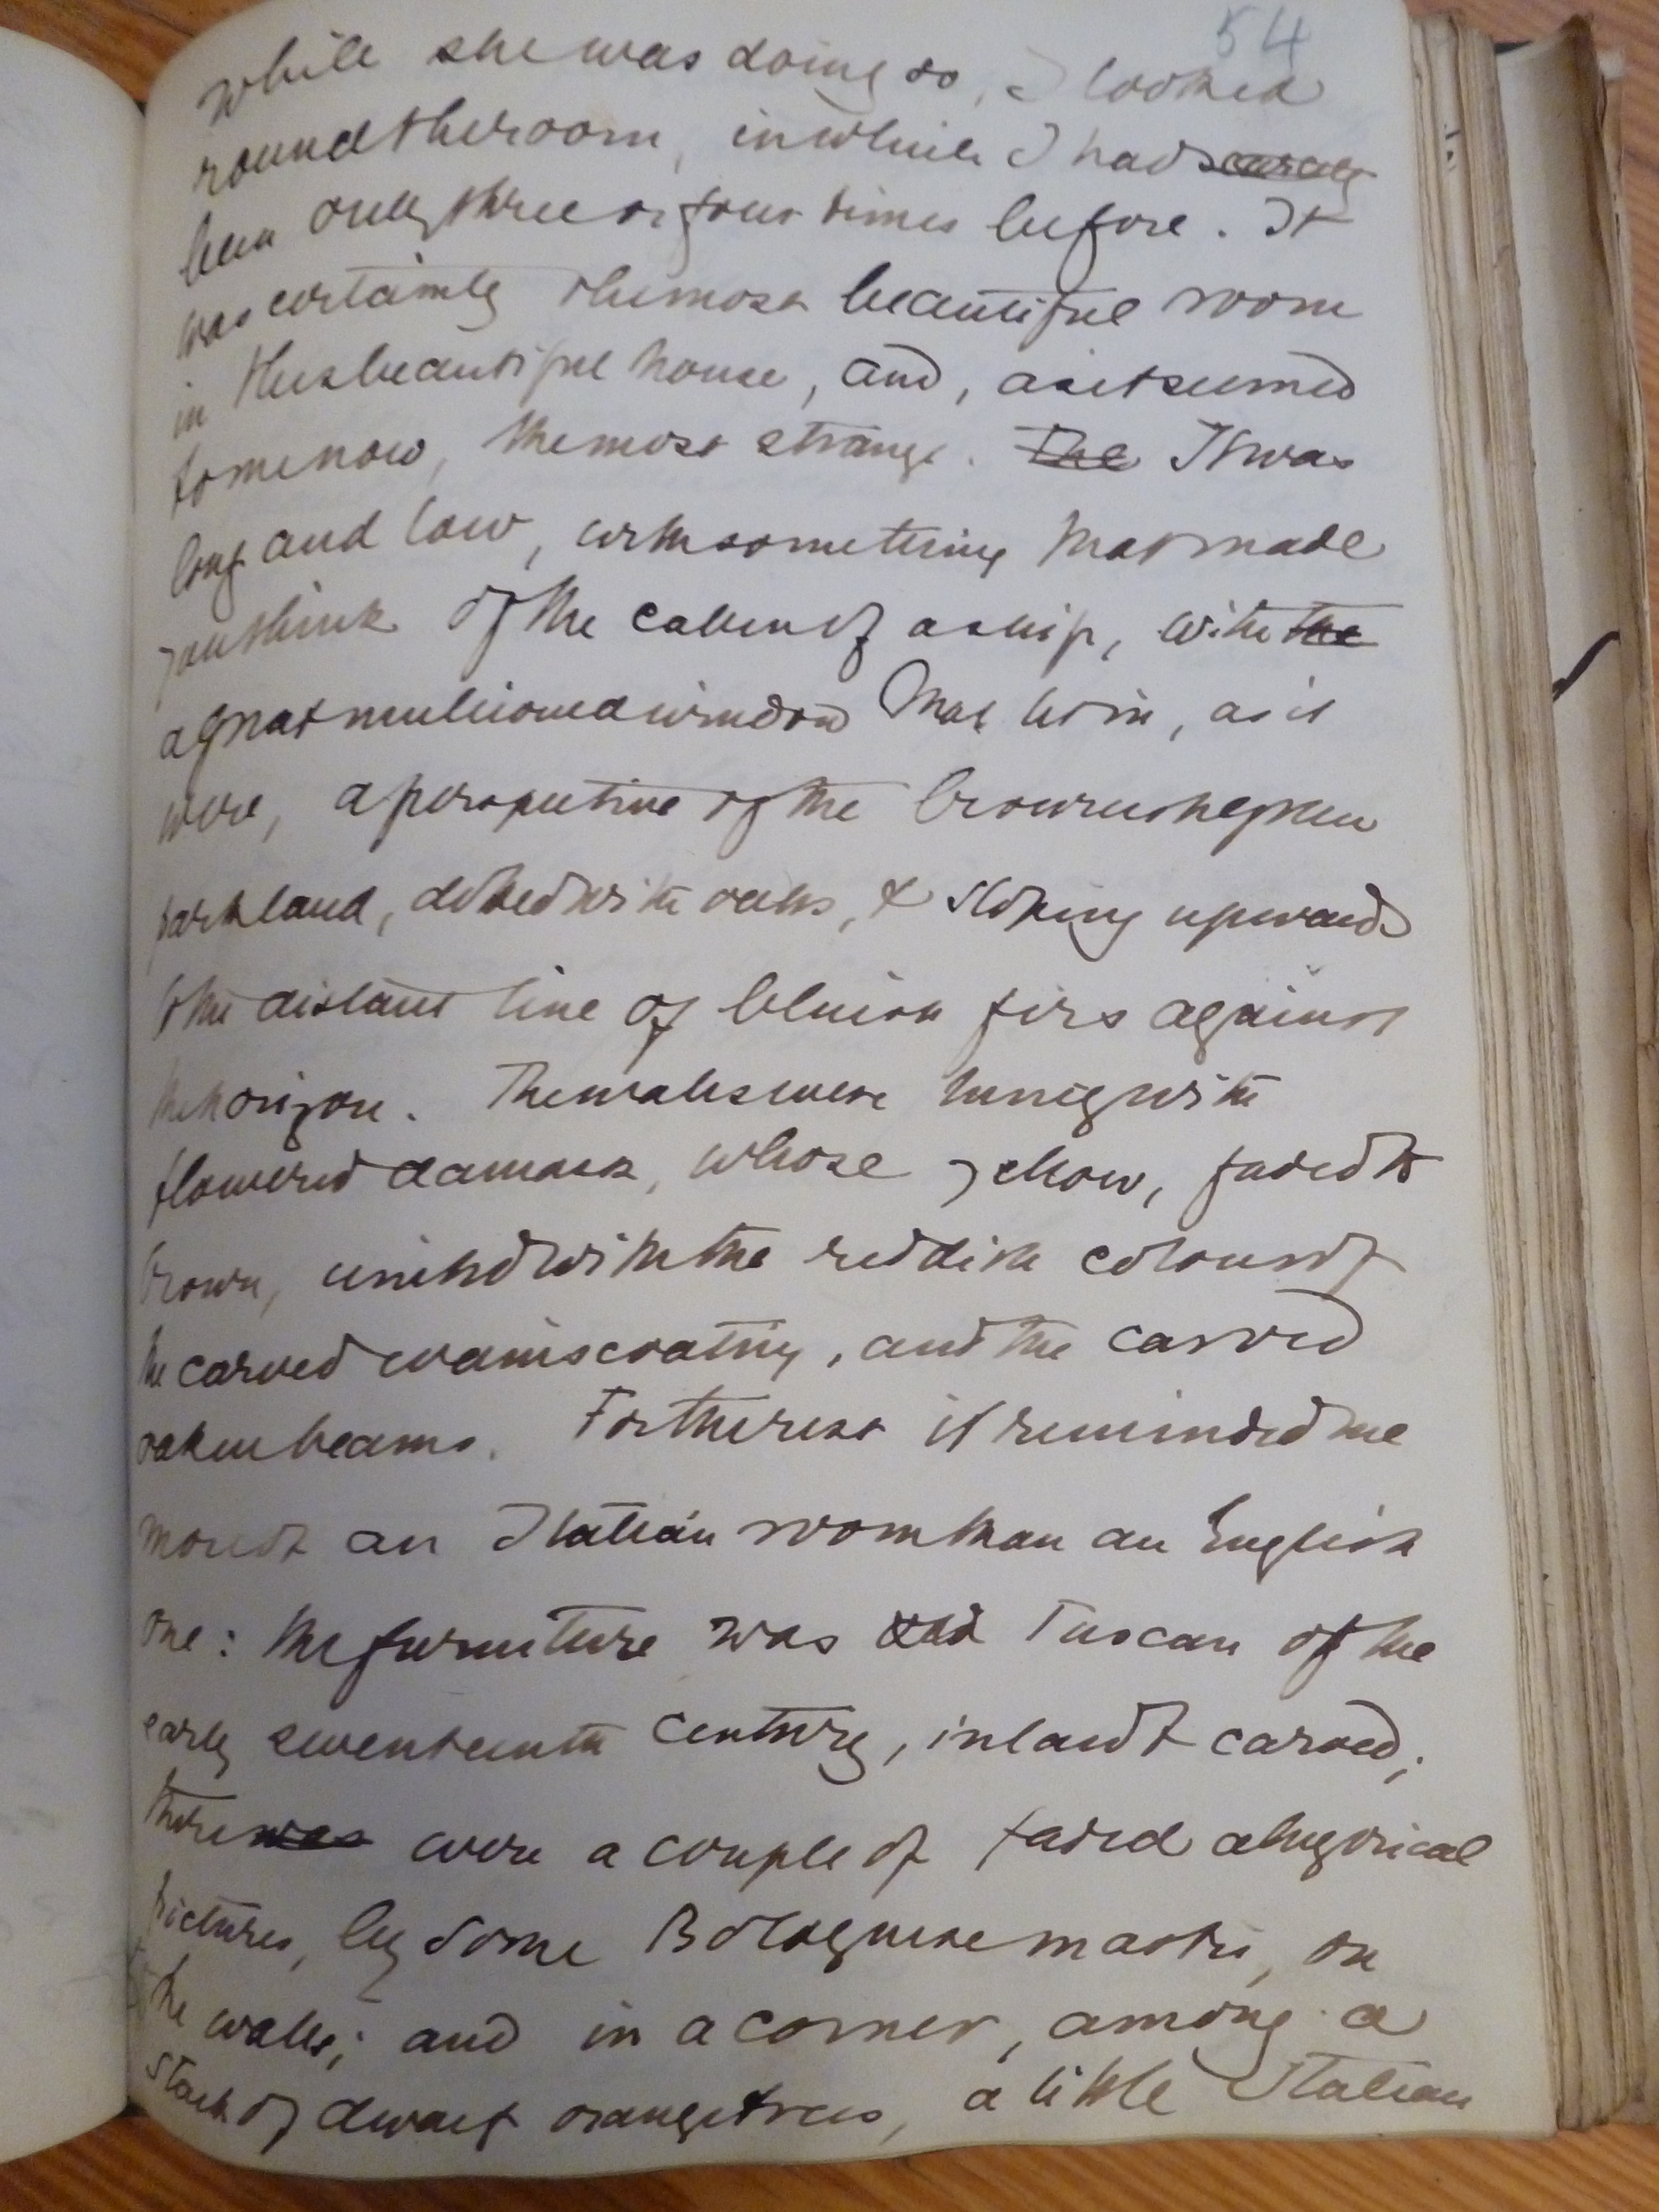 54
while she was doing so, I looked
round the room, in which I had scarcely
been only three or four times before. It
was certainly the most beautiful room
in this beautiful house, and, as it seemed
to me now, the most strange. The It was
long and low, with something that made
you think of the cabin of a ship, with the
a great mullioned window that let in, as it
were, a perspective of the brownish green
parkland, dotted with oaks, & sloping upwards
to the distant line of bluish firs against
the horizon. The walls were hung with
flowered damask, whose yellow, faded to
brown, united with the reddish colour of
the carved wainscoating, and the carved
oaken beams. For the rest it reminded me
more of an Italian room than an English
one: the furniture was old Tuscan of the
early seventeenth century, inlaid & carved;
there was were a couple of faded allegorical
pictures, by some Bolognese master, on
the walls; and in a corner, among a
stack of dwarf orange trees, a little Italian